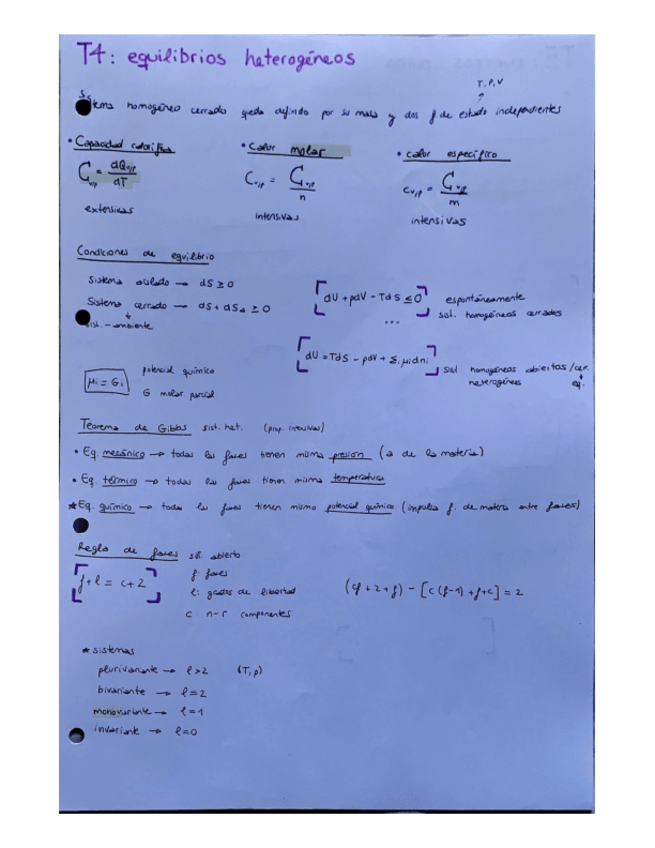 T4: equilibrios heterogéneos
T, P, V
Sistema homogéneo cerrado queda definido por su masa y dos f. de estado independientes
• Capacidad calorífica • Calor molar • calor específico
C_{V/P} = dQ_{V/P} / dT C_{V/P} = C_{V/P} / n c_{V/P} = C_{V/P} / m
extensivas intensivas intensivas
Condiciones de equilibrio
Sistema aislado → dS ≥ 0
Sistema cerrado → dS + dS_a ≥ 0
↓
sist.-ambiente
[dU + pdV - TdS ≤ 0] espontáneamente
... sist. homogéneos cerrados
[dU = TdS - pdV + Σ_i μ_i dn_i] sist homogéneos abiertos/cer.
heterogéneos eq.
μ_i = G_i potencial químico
G molar parcial
Teorema de Gibbs sist. het. (prop. intensivas)
• Eq. mecánico → todas las fases tienen misma presión (a de la materia)
• Eq. térmico → todas las fases tienen misma temperatura
★ Eq. químico → todas las fases tienen mismo potencial químico (impulsa f. de materia entre fases)
Regla de fases sist. abierto
[f + l = c + 2] f: fases
l: grados de libertad
c n-r componentes
(cf + 2 + f) - [c(f-1) + f + c] = 2
★ sistemas
plurivariante → l > 2 (T, p)
bivariante → l = 2
monovariante → l = 1
invariante → l = 0